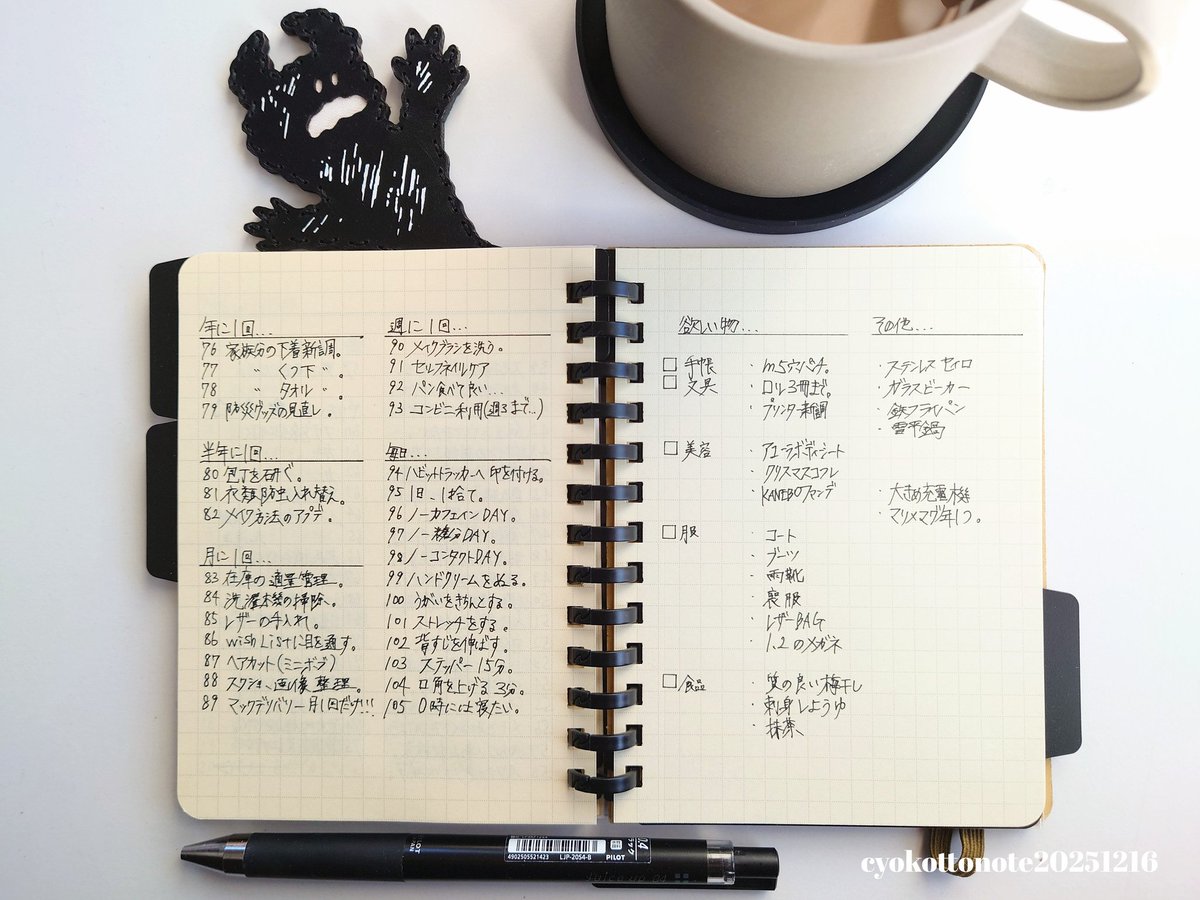 年に1回...
76 家族分の下着新調。
77 〃 くつ下 〃 。
78 〃 タオル 〃 。
79 防災グッズの見直し。
半年に1回...
80 包丁を研ぐ。
81 衣類防虫入れ替え。
82 メイク方法のアプデ。
月に1回...
83 在庫の適量管理。
84 洗濯機の掃除。
85 レザーの手入れ。
86 wish Listに目を通す。
87 ヘアカット(ミニボブ)
88 スクショ、画像整理。
89 マックデリバリー月1回だけ!!!
週に1回...
90 メイクブラシを洗う。
91 セルフネイルケア
92 パン食べて良い...
93 コンビニ利用(週3まで...)
毎日...
94 ハビットトラッカーへ印を付ける。
95 1日、1捨て。
96 ノーカフェインDAY。
97 ノー糖分DAY。
98 ノーコンタクトDAY。
99 ハンドクリームをぬる。
100 うがいをきちんとする。
101 ストレッチをする。
102 背すじを伸ばす。
103 ステッパー15分。
104 口角を上げる3分。
105 0時には寝たい。
欲しい物...
□ 手帳 ・m5穴パンチ。
□ 文具 ・ロルバーン3冊まで。
・プリンター新調
□ 美容 ・アユーラボディシート
・クリスマスコフレ
・KANEBOファンデ
□ 服 ・コート
・ブーツ
・雨靴
・寝服
・レザーBAG
・1.2のメガネ
□ 食品 ・質の良い梅干し
・刺身しょうゆ
・抹茶
その他...
・ステンレス セイロ
・ガラスビーカー
・鉄フライパン
・雪平鍋
・大きめ充電機
・マリメマグ年1つ。
4902505521423 LJP-20S4-B PILOT
juice up 04
cyokottonote20251216